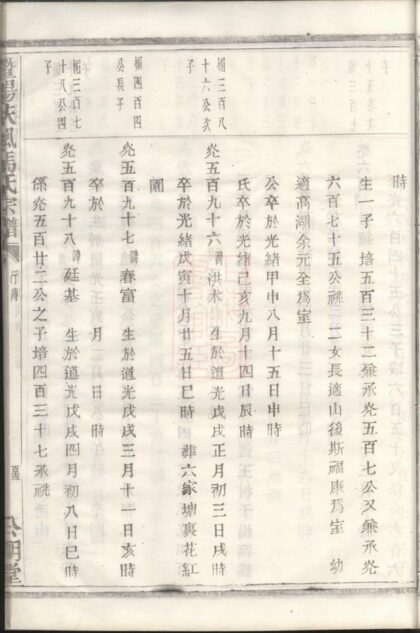 時
生一子 培五百三十二兼承炎五百七公又兼承炎
六百七十五公祧 二女長適山後斯福康爲室 幼
適高湖余元全爲室
公卒於光緒甲申八月十五日申時
氏卒於光緒己亥九月十四日辰時
楣三百八
十六公次
子
炎五百九十六諱洪木 生於道光戊戌正月初三日戌時
卒於光緒戊寅十月廿五日巳時 葬六家塘裏花紅
園
楣四百四
公長子
炎五百九十七諱春富 生於道光戊戌三月十一日亥時
卒於 月 日 時
楣三百七
十八公四
子
炎五百九十八諱廷基 生於道光戊戌四月初八日巳時
係炎五百廿二公之子培四百三十七承祧
暨陽扶風馬氏宗譜
行傳